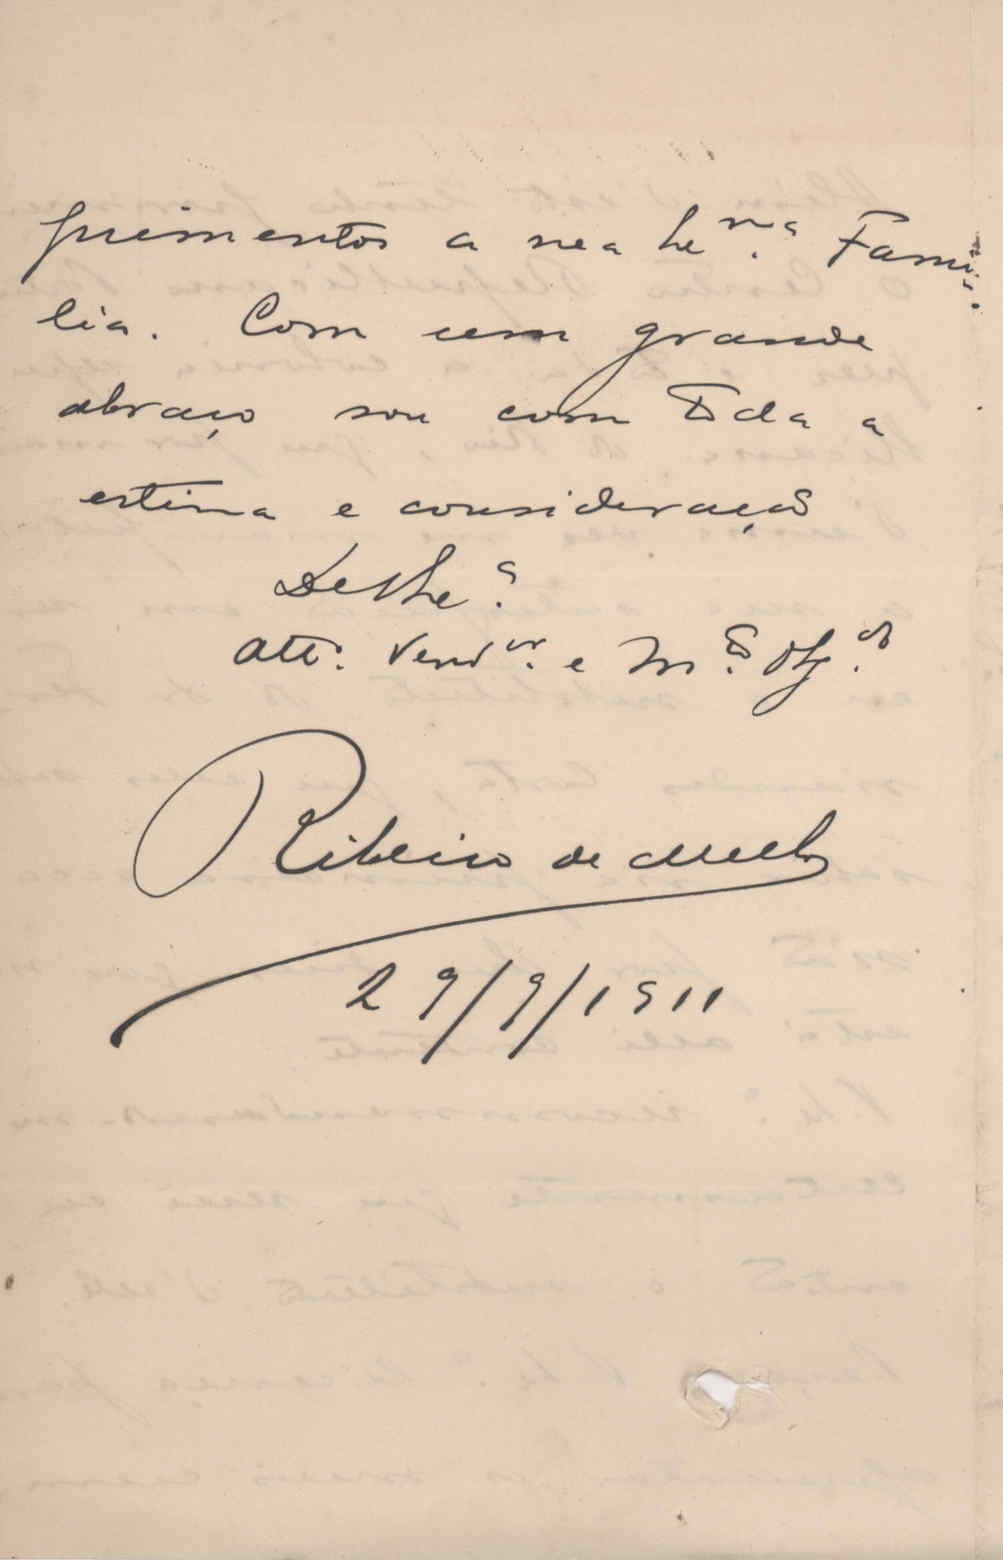 primentos a sua Ex.ma Fami-
lia. Com um grande
abraço sou com toda a
estima e consideração
De V. Ex.a
att.o Ven.or e M.to Obg.do
Ribeiro de Mello
29/9/1911